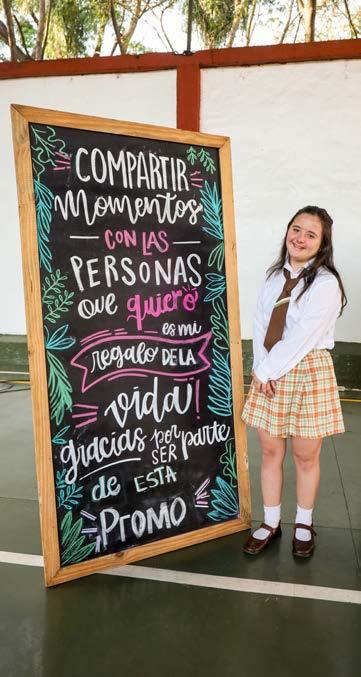 COMPARTIR
Momentos
CON LAS
PERSONAS
QUE quiero
es mi
regalo DE LA
vida!
gracias por SER parte
de ESTA
PROMO